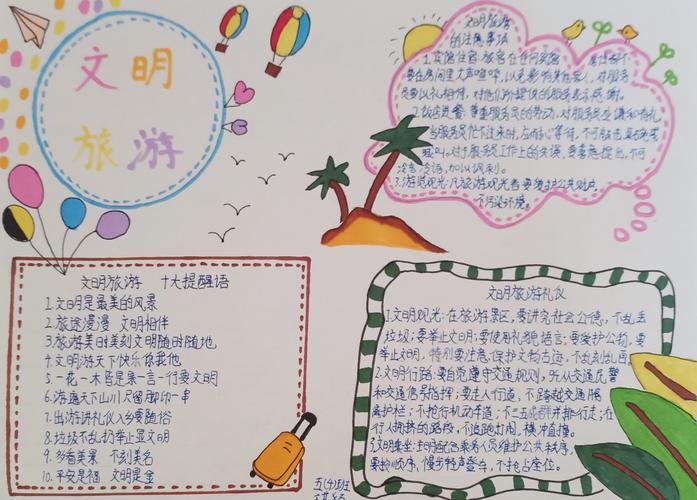 文明
旅游
文明旅游
的注意事项
1.宾馆住宿:旅客在任何宾馆 居住都不
要在房间里大声喧哗,以免影响其他客人,对服务
员要以礼相待,对他们所提供的服务表示感谢。
2.饭店进餐:尊重服务员的劳动,对服务员应谦和有礼
当服务员忙不过来时,应耐心等待,不可敲击桌碗或
喊叫。对于服务员工作上的失误,要善意提出,不可
冷言冷语,加以讽刺。
3.游览观光:凡旅游观光者要爱护公共财产,
不污染环境。
文明旅游 十大提醒语
1.文明是最美的风景
2.旅途漫漫 文明相伴
3.旅游美时美刻文明随时随地
4.文明游天下快乐你我他
5.一花一木皆是景一言一行要文明
6.游遍天下山川只留脚印一串
7.出游讲礼仪入乡要随俗
8.垃圾不乱扔举止显文明
9.多看美景 不刻美名
10.平安是福 文明是金
文明旅游礼仪
1.文明观光:在旅游景区,要讲究社会公德,不乱丢
垃圾;要举止文明;要使用礼貌语言;要爱护公物;要
举止文明,特别要注意,保护文物古迹,不乱刻乱画。
2.文明行路:要自觉遵守交通规则,听从交通民警
和交通信号指挥;要走人行道,不跨越交通隔
离护栏;不抢行机动车道;不三五成群并排行走;在
行人拥挤的路段,不追跑打闹,横冲直撞。
3.文明乘坐:主动配合乘务人员维护公共秩序,
要按顺序,慢步轻声登车,不抢占座位。
五(4)班